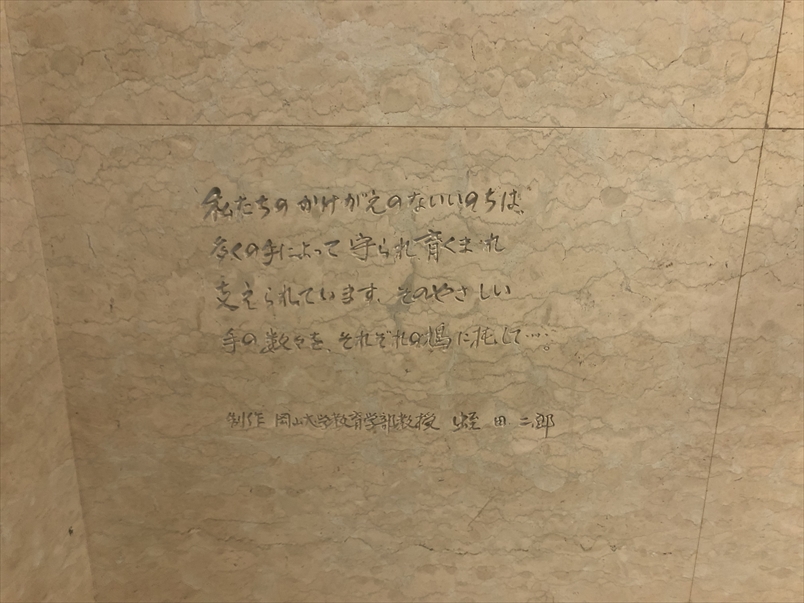 私たちのかけがえのないいのちは、
多くの手によって守られ育くまれ
支えられています。そのやさしい
手の数々を、それぞれの鳩に托して…。
制作 岡山大学教育学部教授 蛭田二郎